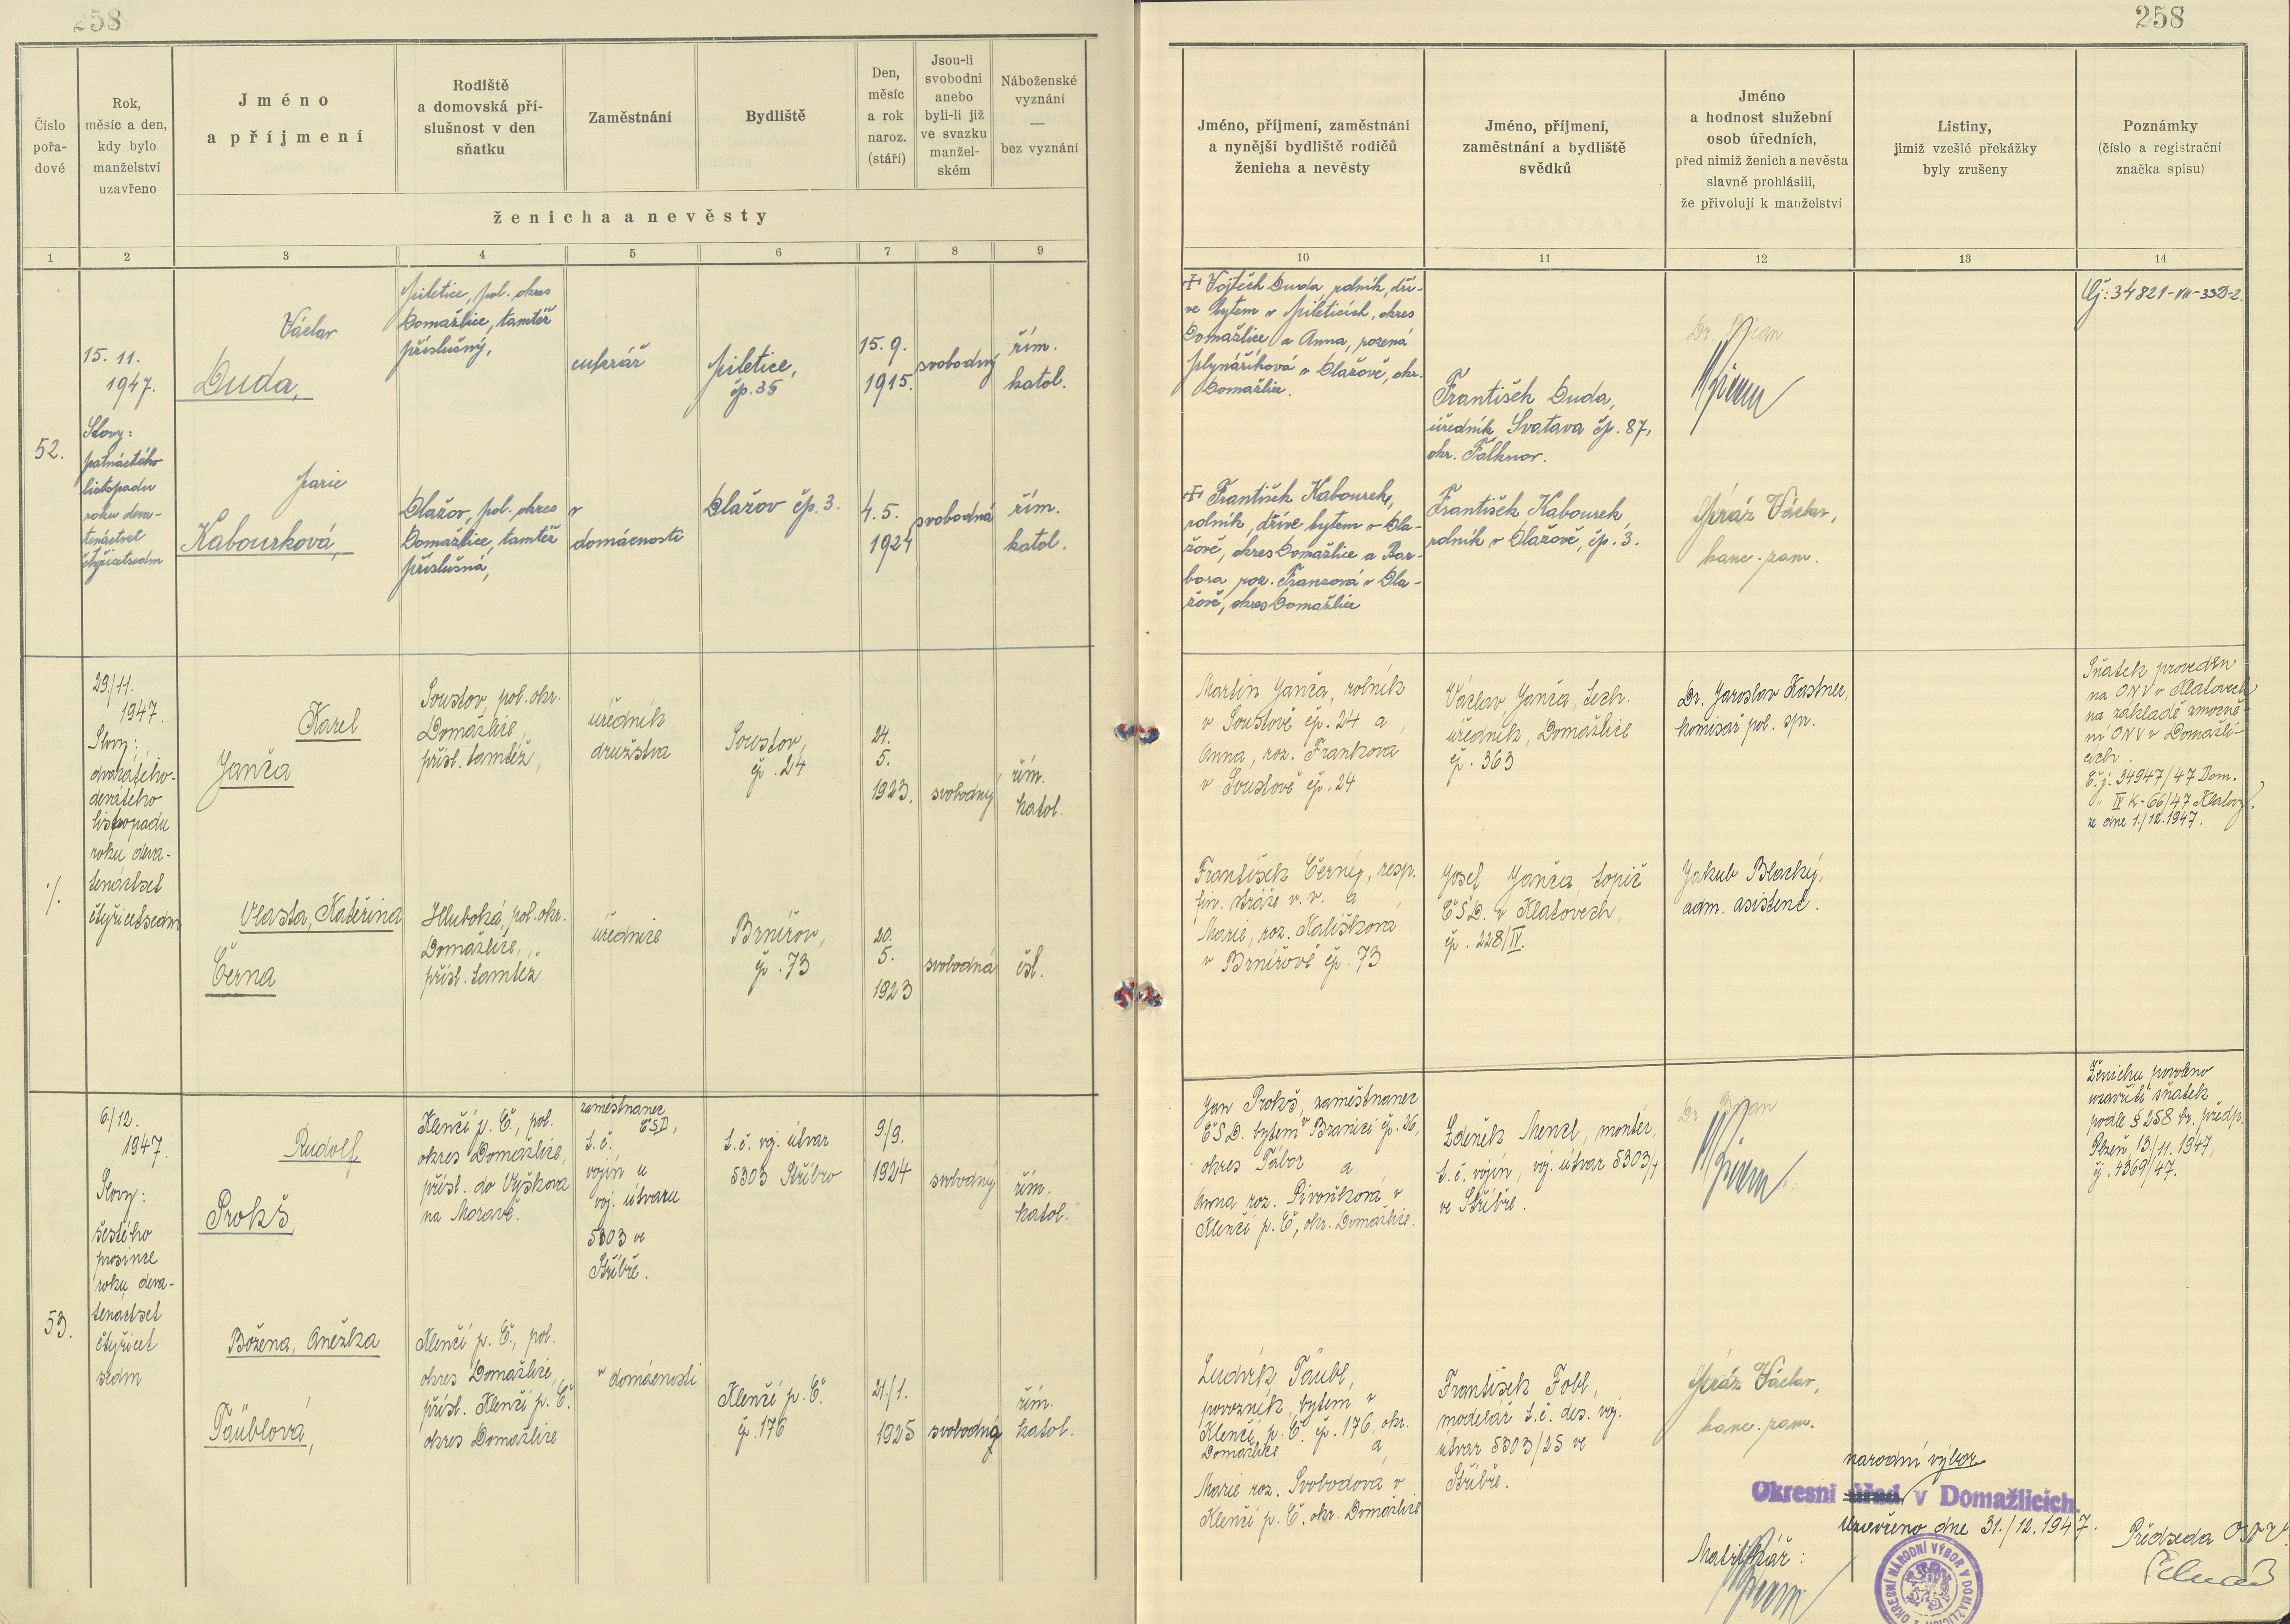 258
258
Číslo pořa-dové
Rok, měsíc a den, kdy bylo manželství uzavřeno
Jméno a příjmení
Rodiště a domovská pří-slušnost v den sňatku
Zaměstnání
Bydliště
Den, měsíc a rok naroz. (stáří)
Jsou-li svobodni anebo byli-li již ve svazku manžel-ském
Náboženské vyznání — bez vyznání
ženicha a nevěsty
Jméno, příjmení, zaměstnání a nynější bydliště rodičů ženicha a nevěsty
Jméno, příjmení, zaměstnání a bydliště svědků
Jméno a hodnost služební osob úředních, před nimiž ženich a nevěsta slavně prohlásili, že přivolují k manželství
Listiny, jimiž vzešlé překážky byly zrušeny
Poznámky (číslo a registrační značka spisu)
1 2 3 4 5 6 7 8 9
10 11 12 13 14
52.
15. 11.
1947.
Slovy:
patnáctého
listopadu
roku deva-
tenáctset
čtyřicetsedm
Václav
Duda,
Miletice, pol. okres
Domažlice, tamtéž
příslušný,
cukrář
Miletice,
čp. 35
15. 9.
1915.
svobodný
řím.
katol.
Marie
Kabourková,
Dlažov, pol. okres
Domažlice, tamtéž
příslušná,
v
domácnosti
Dlažov čp. 3.
4. 5.
1924
svobodná
řím.
katol.
+ Vojtěch Duda, rolník, dří-
ve bytem v Mileticích, okres
Domažlice a Anna, rozená
Mlynáříková v Dlažově, okr.
Domažlice.
František Duda,
úředník Svatava čp. 87,
okr. Falknov.
+ František Kabourek,
rolník, dříve bytem v Dla-
žově, okres Domažlice a Bar-
bora roz. Franzová v Dla-
žově, okres Domažlice
František Kabourek
rolník v Dlažově, čp. 3.
Mráz Václav,
kanc. zam.
Čj: 34821-VII-33D-2.
29./11.
1947.
Slovy:
dvacátého-
devátého
listopadu
roku deva-
tenáctset
čtyřicetsedm
·/.
Karel
Janča
Soustov, pol. okr.
Domažlice,
přísl. tamtéž,
úředník
družstva
Soustov,
čp. 24
24.
5.
1923.
svobodný
řím.
katol.
Vlasta, Kateřina
Černá
Hluboká, pol. okr.
Domažlice,
přísl. tamtéž
úřednice
Brnířov,
čp. 73
20.
5.
1923
svobodná
čsl.
Martin Janča, rolník
v Soustově čp. 24 a
Anna, roz. Franková
v Soustově čp. 24
Václav Janča, tech.
úředník, Domažlice
čp. 363
Dr. Jaroslav Kastner,
komisař pol. spr.
Sňatek proveden
na ONV v Klatovech
na základě zmocně-
ní ONV v Domažli-
cích.
Č.j: 34947/47 Dom.
" IV K-66/47 Klatovy.
ze dne 1./12.1947.
František Černý, resp.
fin. stráže v. v. a
Marie, roz. Kališková
v Brnířově čp. 73
Josef Janča, topič
ČSD. v Klatovech,
čp. 228/IV.
Jakub Blacký,
adm. asistent.
53.
6/12.
1947.
Slovy:
šestého
prosince
roku deva-
tenáctset
čtyřicet
sedm
Rudolf
Prokš,
Klenčí p. Č., pol.
okres Domažlice,
přísl. do Vyškova
na Moravě.
zaměstnanec
ČSD,
t. č.
vojín u
voj. útvaru
5303 ve
Stříbře.
t. č. voj. útvar
5303 Stříbro
9/9.
1924
svobodný
řím.
katol.
Božena, Anežka
Täublová,
Klenčí p. Č., pol.
okres Domažlice,
přísl. Klenčí p. Č.
okres Domažlice
v domácnosti
Klenčí p. Č.
čp. 176
21/1.
1925
svobodná
řím.
katol.
Jan Prokš, zaměstnanec
ČSD. bytem v Branici čp. 26,
okres Tábor a
Anna roz. Pivoňková v
Klenčí p. Č, okr. Domažlice.
Zdeněk Menzl, montér,
t. č. vojín, voj. útvar 5303/7
ve Stříbře.
Ženichu povoleno
uzavříti sňatek
podle § 258 br. předp.
Plzeň, 13/11. 1947,
čj. 4369/47.
Ludvík Täubl,
povozník, bytem v
Klenčí p. Č. čp. 176, okr.
Domažlice a
Marie roz. Svobodová v
Klenčí p. Č. okr. Domažlice
František Tobl,
modelář t. č. des. voj.
útvar 5303/25 ve
Stříbře.
Mráz Václav,
kanc. zam.
národní výbor
Okresní úřad v Domažlicích.
Uzavřeno dne 31./12.1947.
Matrikář:
Předseda ONV:
OKRESNÍ NÁRODNÍ VÝBOR V DOMAŽLICÍCH